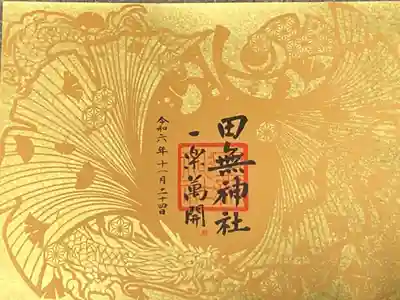 田無神社
一樂萬開
令和六年十一月二十四日